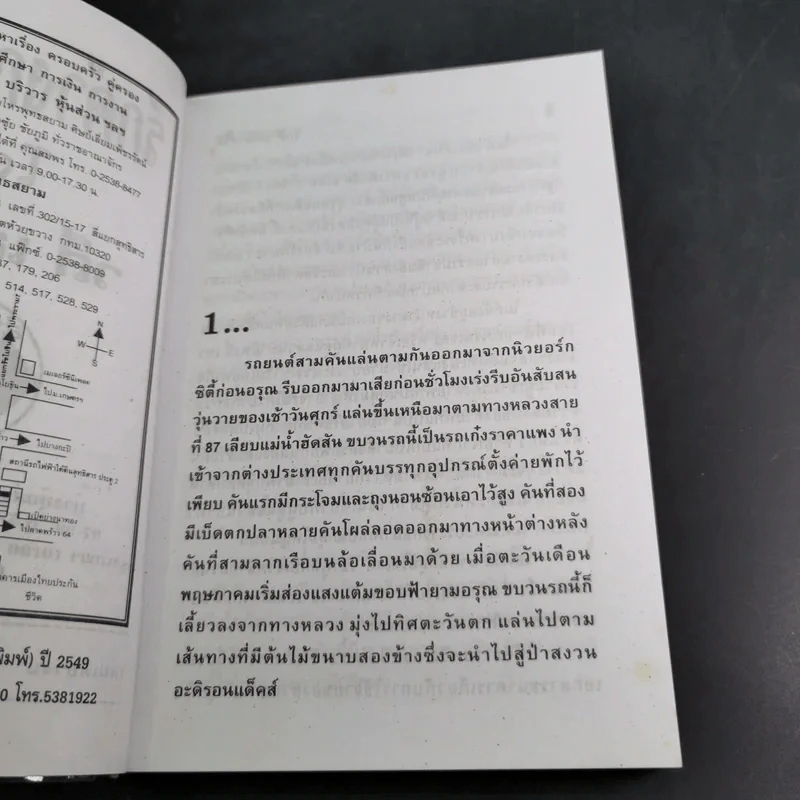 หาเรื่อง ครอบครัว คู่ครอง
ศึกษา การเงิน การงาน
บริวาร หุ้นส่วน ฯลฯ
โหรพุทธสยาม ศิษย์เอี่ยมเพ็ชรรัตน์
ชัยภูมิ ทั่วราชอาณาจักร
ได้ที่ คุณสมพร โทร. 0-2538-8477
เวลา 9.00-17.30 น.
ธสยาม
เลขที่ 302/15-17 สี่แยกสุทธิสาร
ห้วยขวาง กทม.10320
แฟ็กซ์. 0-2538-8009
179, 206
514, 517, 528, 529
N
W
E
S
ไปม.เกษตรฯ
ไปบางกะปิ
สถานีรถไฟฟ้าใต้ดินสุทธิสาร ประตู 2
เป็ดย่างนาทอง
ไปลาดพร้าว 64
คารเมืองไทยประกัน
ชีวิต
พิมพ์) ปี 2549
0 โทร.5381922
1...
รถยนต์สามคันแล่นตามกันออกมาจากนิวยอร์ก
ซิตี้ก่อนอรุณ รีบออกมามาเสียก่อนชั่วโมงเร่งรีบอันสับสน
วุ่นวายของเช้าวันศุกร์ แล่นขึ้นเหนือมาตามทางหลวงสาย
ที่ 87 เลียบแม่น้ำฮัดสัน ขบวนรถนี้เป็นรถเก๋งราคาแพง นำ
เข้าจากต่างประเทศทุกคันบรรทุกอุปกรณ์ตั้งค่ายพักไว้
เพียบ คันแรกมีกระโจมและถุงนอนซ้อนเอาไว้สูง คันที่สอง
มีเบ็ดตกปลาหลายคันโผล่ลอดออกมาทางหน้าต่างหลัง
คันที่สามลากเรือบนล้อเลื่อนมาด้วย เมื่อตะวันเดือน
พฤษภาคมเริ่มส่องแสงแต้มขอบฟ้ายามอรุณ ขบวนรถนี้ก็
เลี้ยวลงจากทางหลวง มุ่งไปทิศตะวันตก แล่นไปตาม
เส้นทางที่มีต้นไม้ขนาบสองข้างซึ่งจะนำไปสู่ป่าสงวน
อะดิรอนแด็คส์